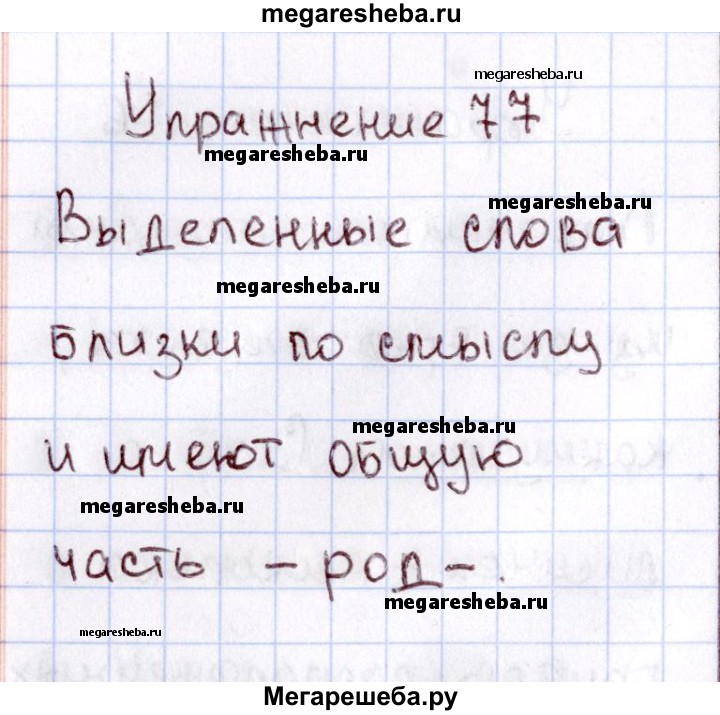 megaresheba.ru
megaresheba.ru
Упражнение 77
megaresheba.ru
megaresheba.ru
Выделенные слова
megaresheba.ru
близки по смыслу
megaresheba.ru
и имеют общую
megaresheba.ru
часть – род – .
megaresheba.ru
megaresheba.ru
Мегарешеба.ру